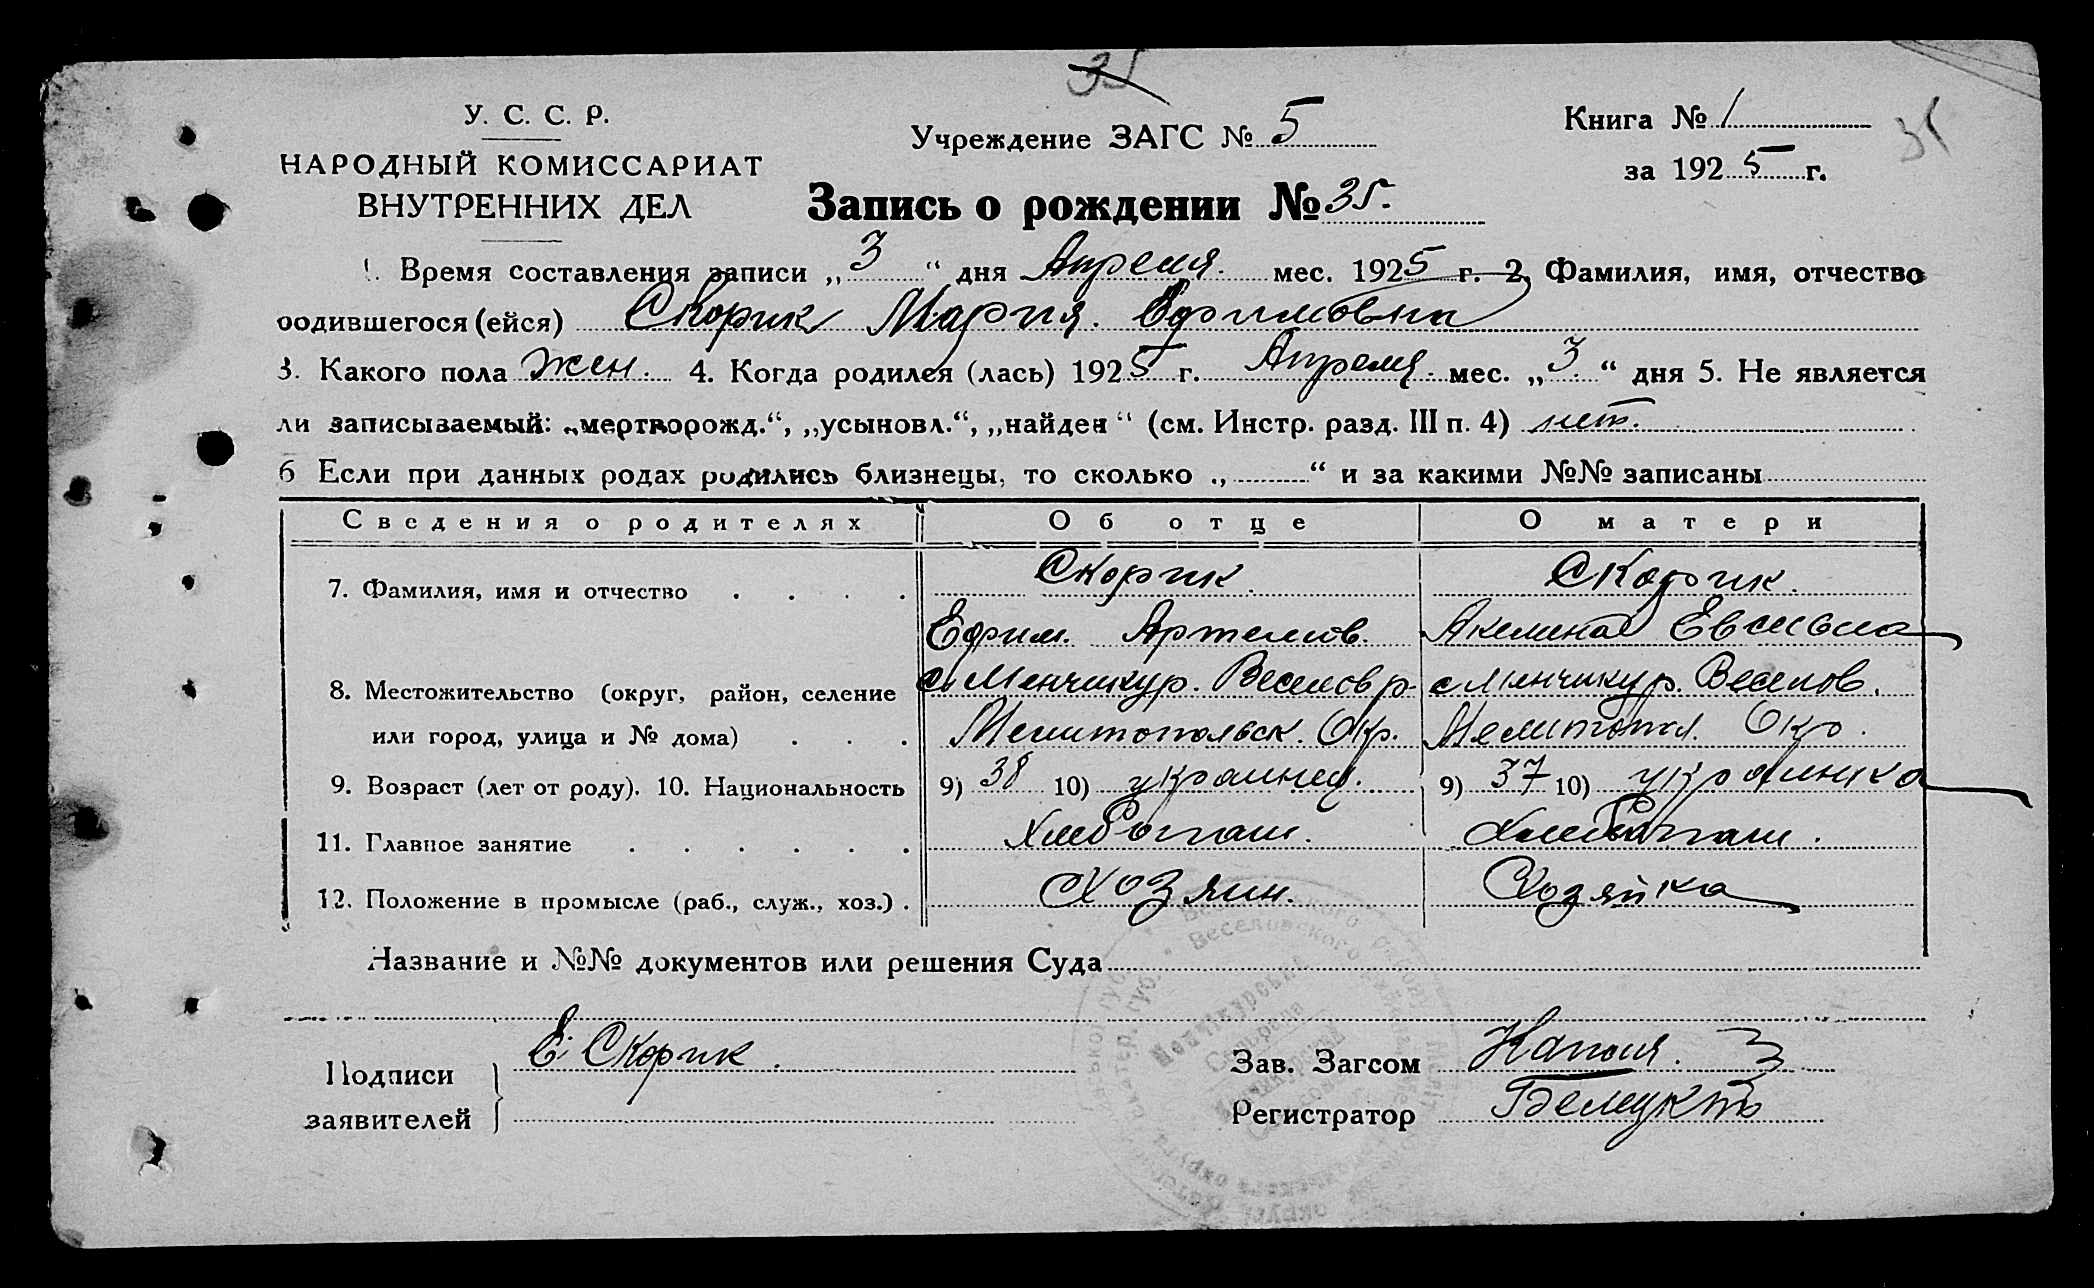 35
У. С. С. Р.
НАРОДНЫЙ КОМИССАРИАТ
ВНУТРЕННИХ ДЕЛ
Учреждение ЗАГС № 5
Книга № 1
за 1925 г.
35
Запись о рождении № 35.
1. Время составления записи „3“ дня Апреля. мес. 1925 г. 2. Фамилия, имя, отчество
родившегося (ейся) Скорик Мария. Ефимовна
3. Какого пола жен. 4. Когда родился (лась) 1925 г. Апреля. мес. „3“ дня 5. Не является
ли записываемый: „мертворожд.“, „усыновл.“, „найден“ (см. Инстр. разд. III п. 4) нет.
6 Если при данных родах родились близнецы, то сколько „ “ и за какими №№ записаны
Сведения о родителях Об отце О матери
7. Фамилия, имя и отчество Скорик. Скорик.
Ефим. Артемов. Акелина
8. Местожительство (округ, район, селение с Менчикур. Веселов р. с Минчикур. Веселов.
или город, улица и № дома) Мелитопольск. Окр. Мелитопол. Окр.
9. Возраст (лет от роду). 10. Национальность 9) 38 10) украинец. 9) 37 10) украинка
11. Главное занятие Хлебопаш. Хлебопаш.
12. Положение в промысле (раб., служ., хоз.) Хозяин. Хозяйка
Название и №№ документов или решения Суда
Подписи
заявителей
Е. Скорик.
Зав. Загсом
Регистратор